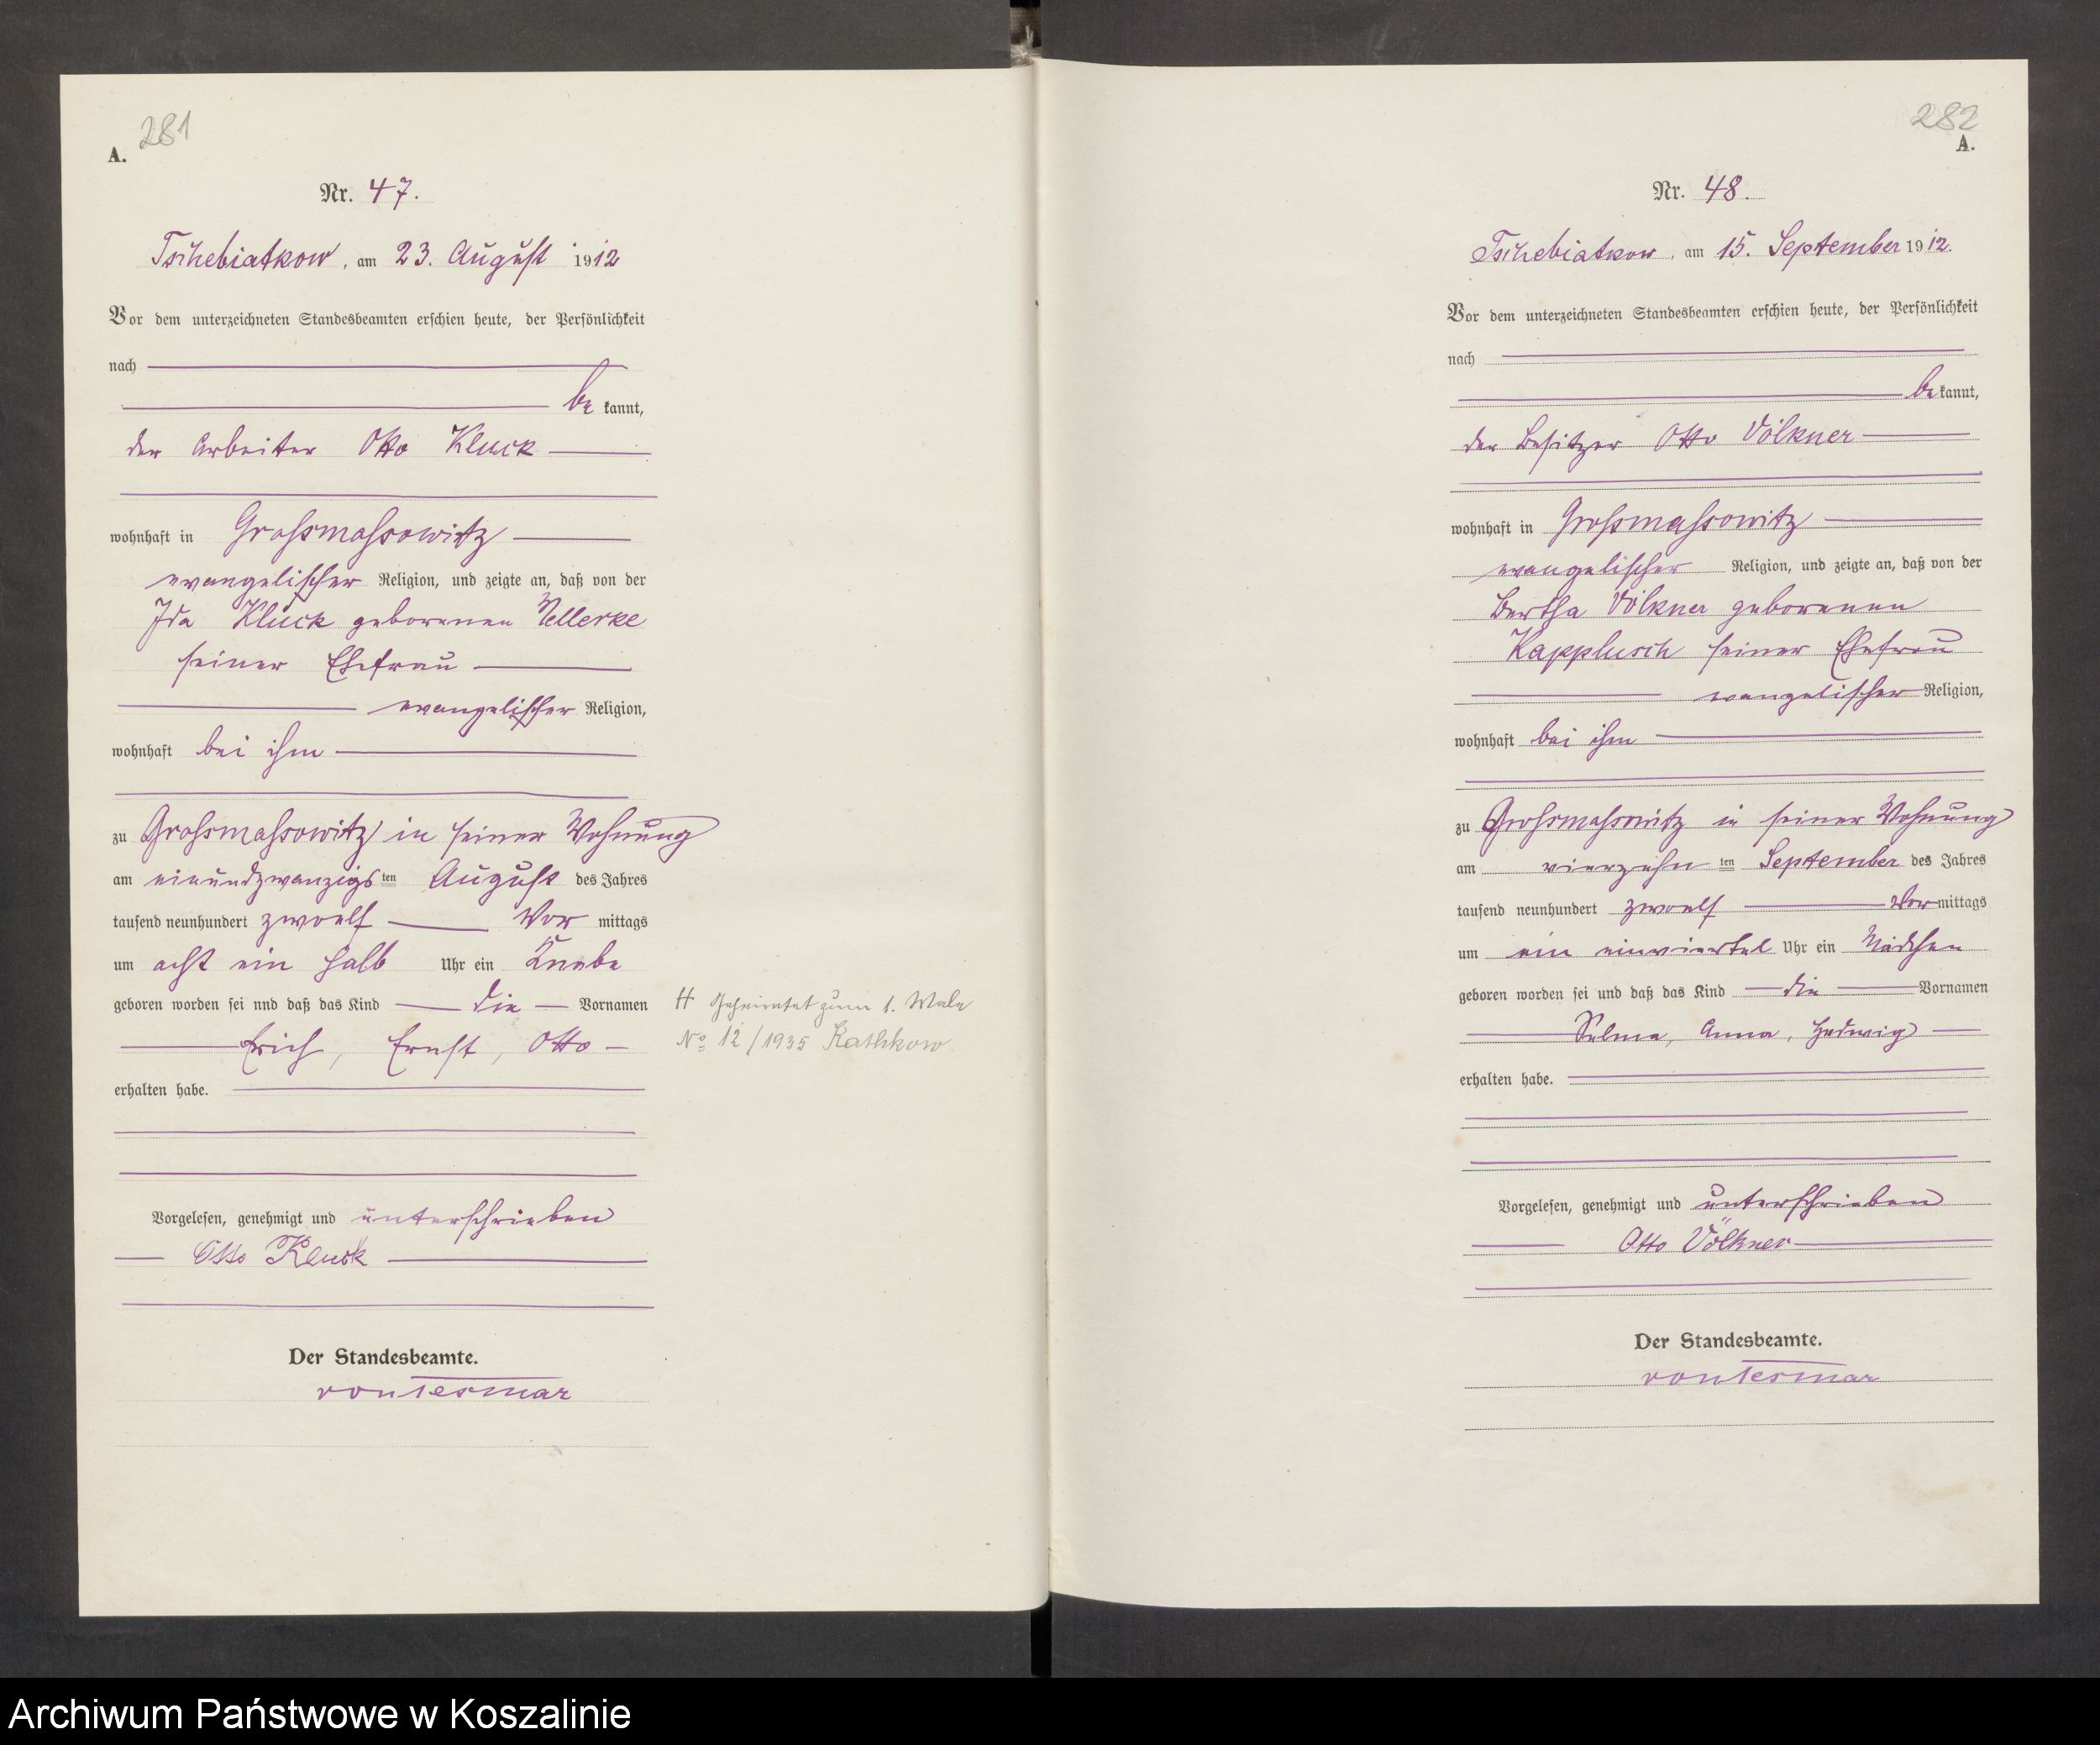 281
A.
Nr. 47.
Tschebiatkow, am 23. August 1912
Vor dem unterzeichneten Standesbeamten erschien heute, der Persönlichkeit
nach
be kannt,
der Arbeiter Otto Kluck
wohnhaft in Grossmassowitz
evangelischer Religion, und zeigte an, daß von der
Ida Kluck geborenen Nellerke
seiner Ehefrau
evangelischer Religion,
wohnhaft bei ihm
zu Grossmassowitz in seiner Wohnung
am einundzwanzigs ten August des Jahres
tausend neunhundert zwoelf Vor mittags
um acht ein halb Uhr ein Knabe
geboren worden sei und daß das Kind die Vornamen
Erich, Ernst, Otto
erhalten habe.
Vorgelesen, genehmigt und unterschrieben
Otto Kluck
Der Standesbeamte.
von Tesmar
H Geheiratet zum 1. Male
No 12/1935 Rathkow
282
A.
Nr. 48.
Tschebiatkow, am 15. September 1912.
Vor dem unterzeichneten Standesbeamten erschien heute, der Persönlichkeit
nach
be kannt,
der Besitzer Otto Völkner
wohnhaft in Grossmassowitz
evangelischer Religion, und zeigte an, daß von der
Bertha Völkner geborenen
Kapplusch seiner Ehefrau
evangelischer Religion,
wohnhaft bei ihm
zu Grossmassowitz in seiner Wohnung
am vierzehn ten September des Jahres
tausend neunhundert zwoelf Vor mittags
um ein einviertel Uhr ein Mädchen
geboren worden sei und daß das Kind die Vornamen
Selma, Anna, Hedwig
erhalten habe.
Vorgelesen, genehmigt und unterschrieben
Otto Völkner
Der Standesbeamte.
von Tesmar
Archiwum Państwowe w Koszalinie